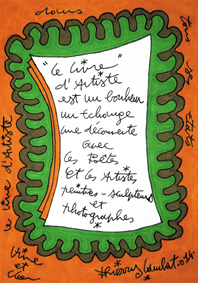 dans
tous ses états
"Le livre"
d'Artiste
est un bonheur
un échange
une découverte
avec
les Poëtes
et les Artistes
peintres - sculpteurs
et
photographes
le livre d'Artiste
Vivre
et
créer
thierry Lambert. 014